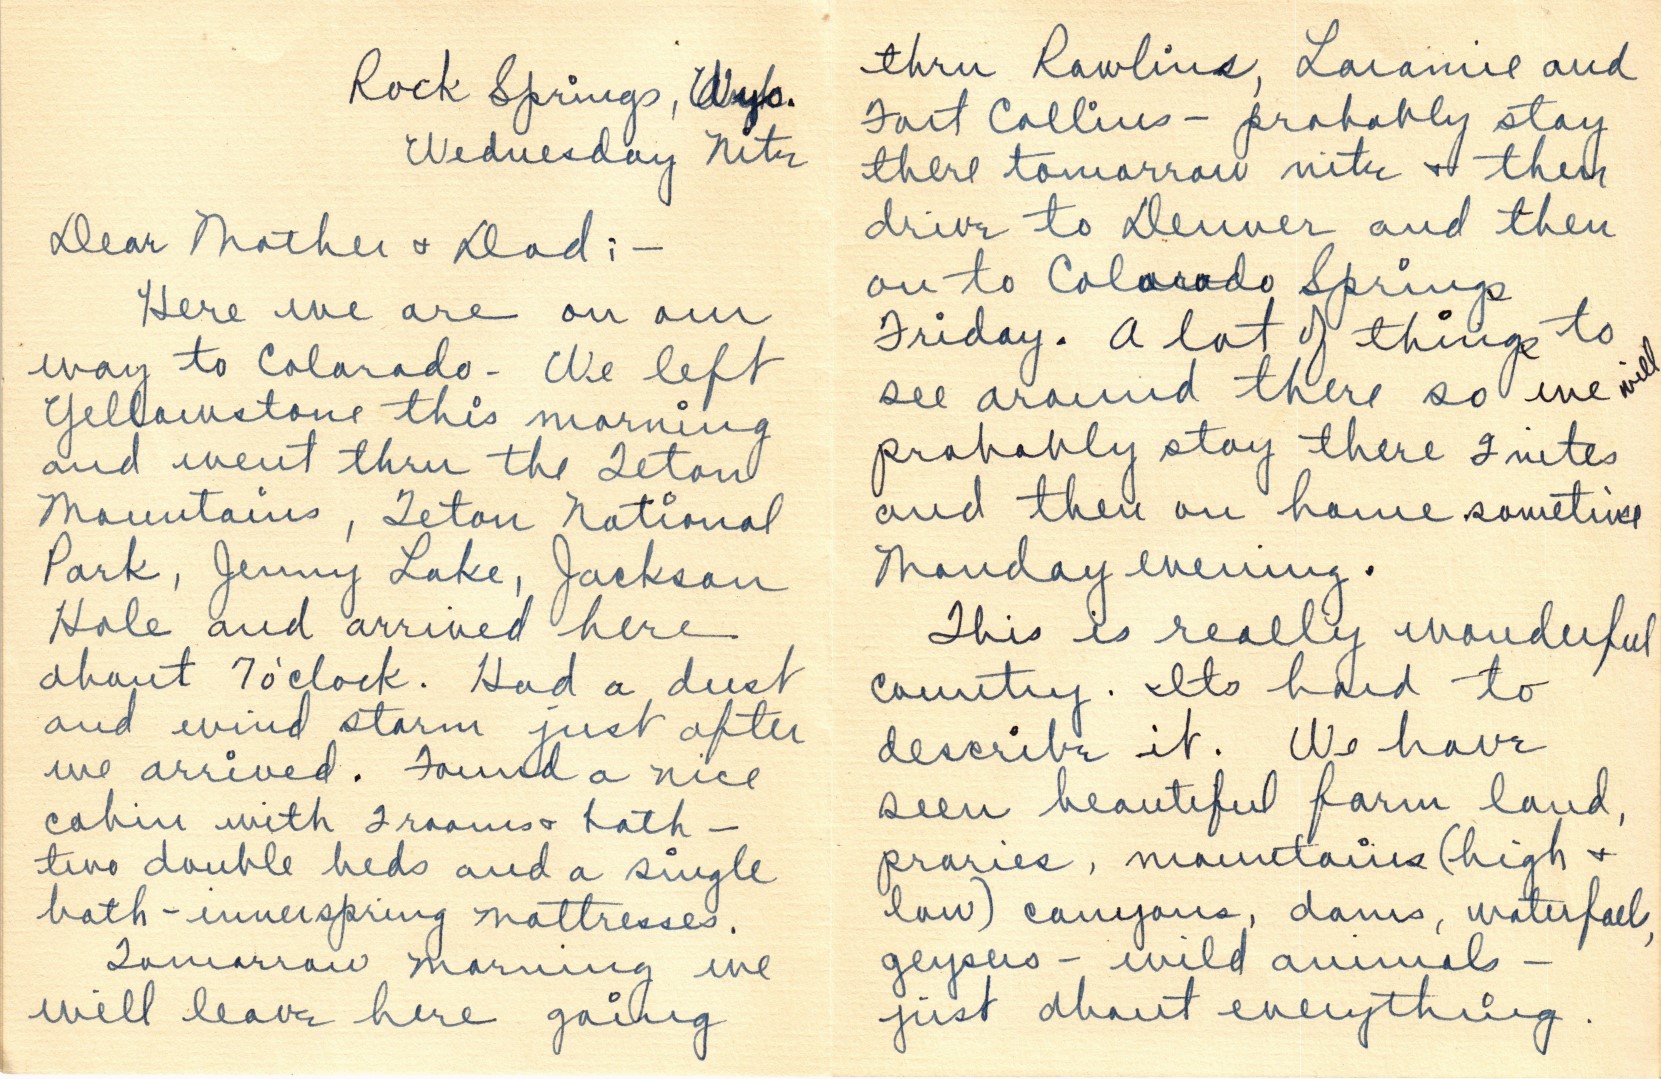 Rock Springs, Wyo.
Wednesday Nite
Dear Mother & Dad; -
Here we are on our
way to Colorado - We left
Yellowstone this morning
and went thru the Teton
Mountains, Teton National
Park, Jenny Lake, Jackson
Hole and arrived here
about 7 o'clock. Had a dust
and wind storm just after
we arrived. Found a nice
cabin with 2 rooms & bath -
two double beds and a single
bath - innerspring mattresses.
Tomorrow morning we
will leave here going
thru Rawlins, Laramie and
Fort Collins - probably stay
there tomorrow nite & then
drive to Denver and then
on to Colorado Springs
Friday. A lot of things to
see around there so we will
probably stay there 2 nites
and then on home sometime
Monday evening.
This is really wonderful
country. Its hard to
describe it. We have
seen beautiful farm land,
praries, mountains (high &
low) canyons, dams, waterfalls,
geysers - wild animals -
just about everything.